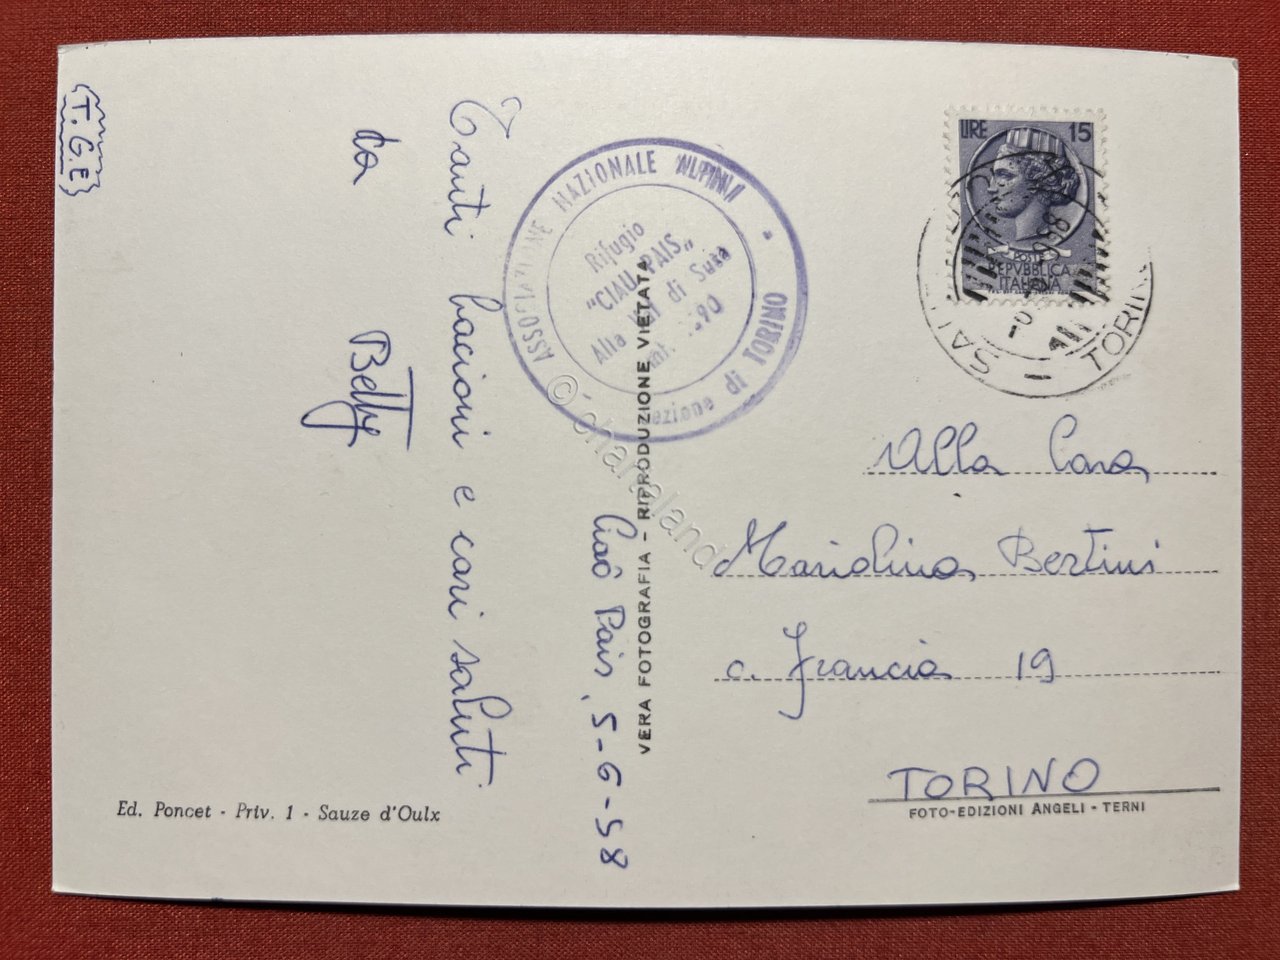 T.G.E
Tanti bacioni e cari saluti
da
Betty
Ciaô Pais, 5-6-58
ASSOCIAZIONE NAZIONALE ALPINI
Rifugio
"CIAU PAIS"
Alta Val di Susa
zione di TORINO
VERA FOTOGRAFIA - RIPRODUZIONE VIETATA
© chartaland
LIRE 15
POSTE
REPVBBLICA
ITALIANA
TORIN
Alla Cara
Mariolina Bertini
c. Francia 19
TORINO
FOTO-EDIZIONI ANGELI - TERNI
Ed. Poncet - Priv. 1 - Sauze d'Oulx